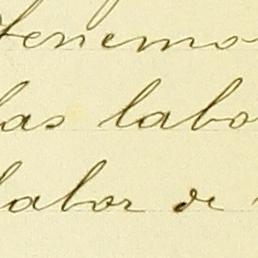 Tenemo
las labo
labor de